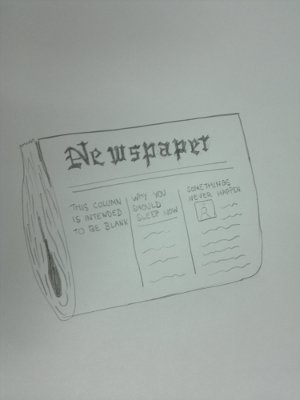 Newspaper
THIS COLUMN
IS INTENDED
TO BE BLANK
WHY YOU
SHOULD
SLEEP NOW
SOMETHINGS
NEVER HAPPEN